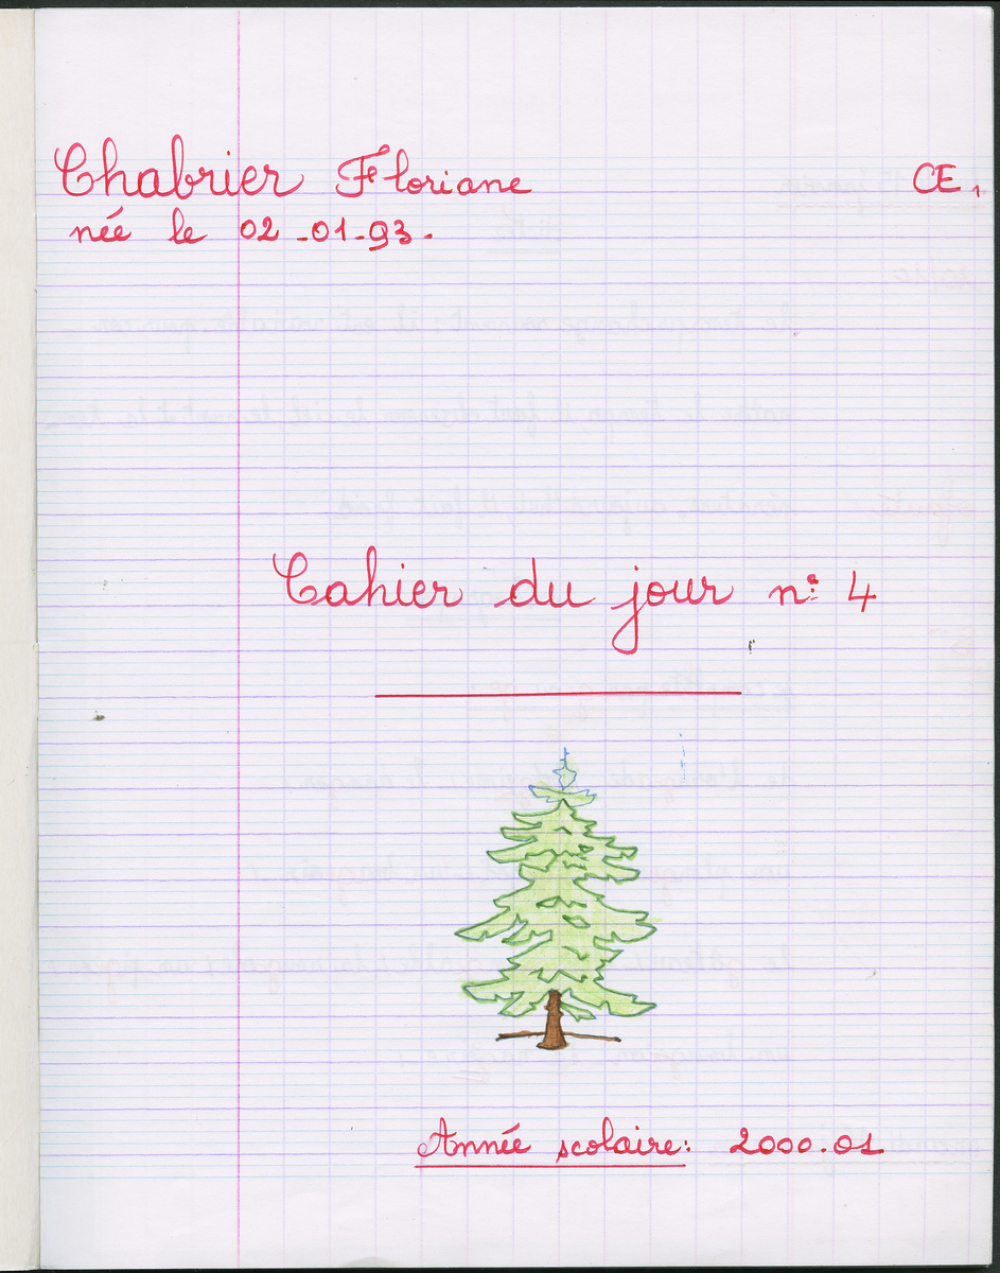 Chabrier Floriane CE1
née le 02-01-93.
Cahier du jour n° 4
Année scolaire: 2000.01